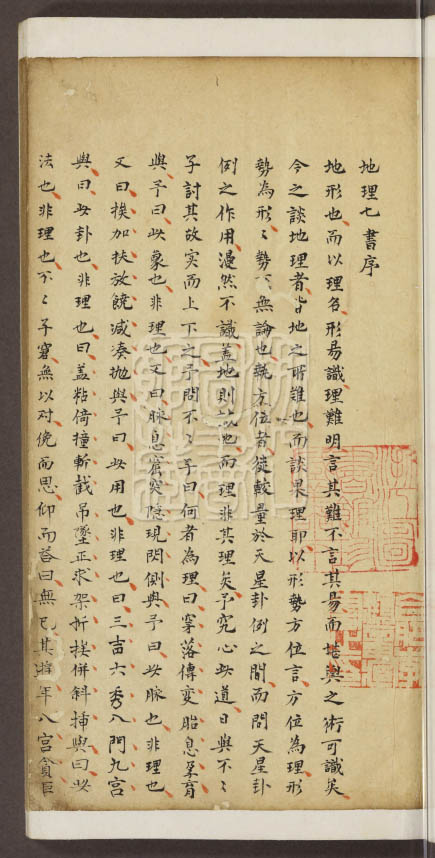 地理七書序
地形也而以理名形易識理難明言其難不言其易而堪輿之術可識矣
今之談地理者皆地之所難也而談果理耶以形勢方位言方位為理形
勢為形〻勢無論也執方位者徒較量於天星卦例之間而問天星卦
例之作用漫然不識蓋地則故地而理非其理矣予究心此道日與不〻
子討其故实而上下之予問不〻子曰何者為理曰穿落傳变胎息孕育
與予曰此象也非理也又曰脉息窟突隱現閃倒與予曰此脉也非理也
又曰挨加扶放饒减湊抛與予曰此用也非理也曰三吉六秀八門九宮
與曰此卦也非理也曰盖粘倚撞斬截吊墜正求架折挨併斜插與曰此
法也非理也不〻子窘無以对俛而思仰而荅曰無已其 年八宮貪巨